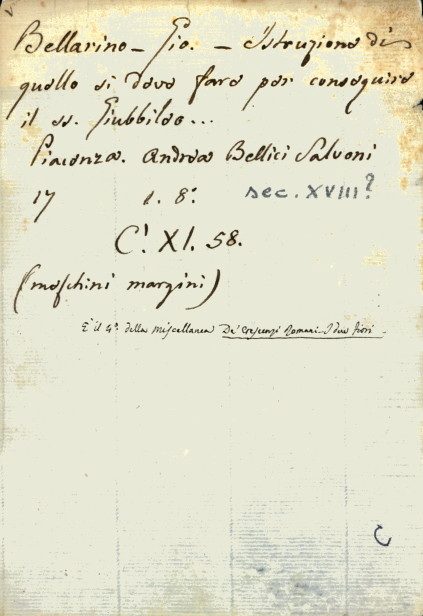 Bellarino - Gio. - Istruzione di
quello si deve fare per conseguire
il ss. Giubbileo...
Piacenza. Andrea Bellici Salvoni
17 1. 8.° sec. XVIII?
C! XI. 58.
(meschini margini)
È il 4.° della Miscellanea De' Crescenzi Romani - I due fiori -
C